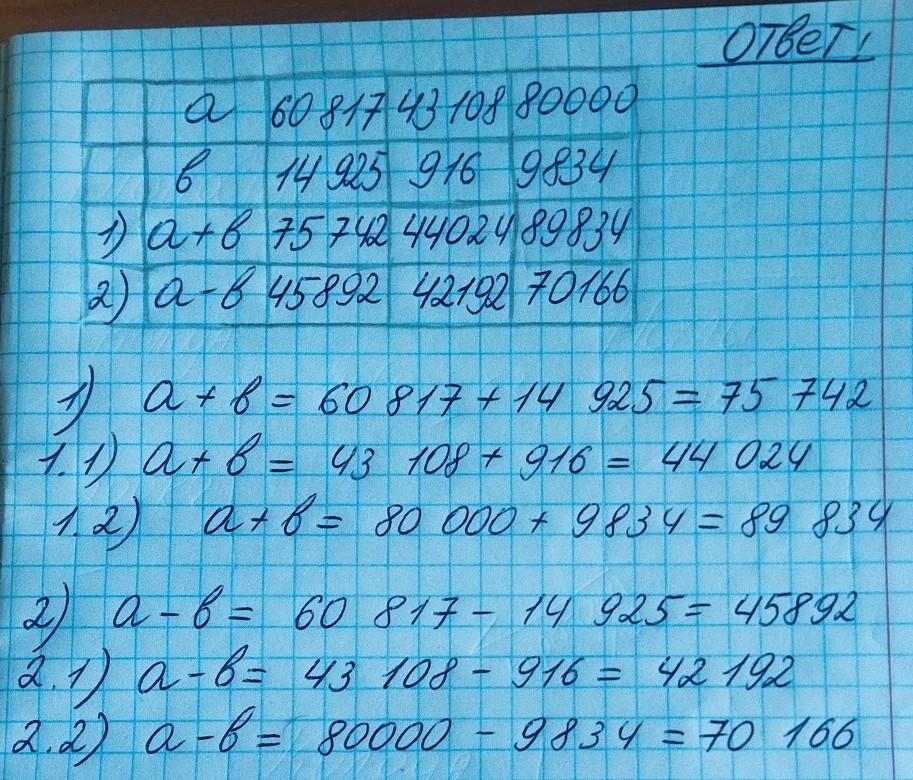 Ответ:
а 60 817 43 108 80000
в 14 925 916 9834
1) а+в 75 742 44024 89834
2) а-в 45892 42192 70166
1) а + в = 60 817 + 14 925 = 75 742
1.1) а + в = 43 108 + 916 = 44 024
1.2) а + в = 80 000 + 9834 = 89 834
2) а - в = 60 817 - 14 925 = 45892
2.1) а - в = 43 108 - 916 = 42 192
2.2) а - в = 80000 - 9834 = 70 166